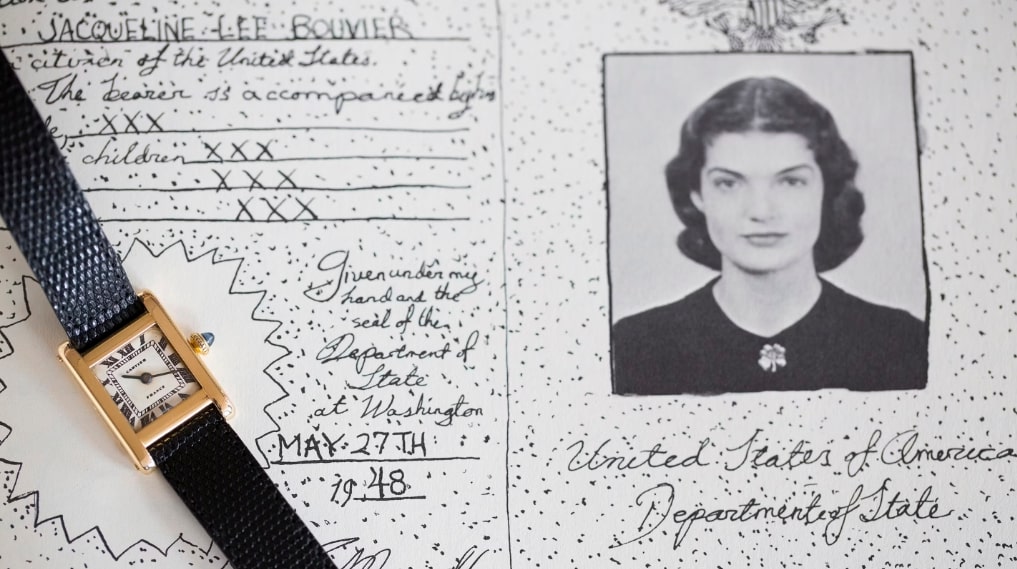 JACQUELINE LEE BOUVIER
citizen of the United States.
The bearer is accompanied by his
XXX
children XXX
XXX
XXX
Given under my
hand and the
seal of the
Department of
State
at Washington
MAY 27TH
19 48
CARTIER
FRANCE
United States of America
Department of State